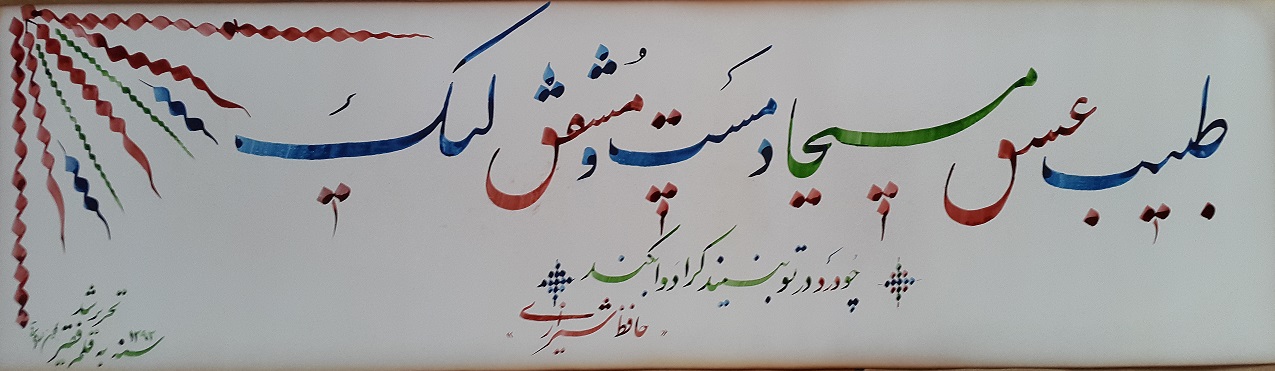 طبیب عشق مسیحا دمست و مشفق لیک
چو درد در تو نبیند کرا دوا بکند
«حافظ شیرازی»
تحریر شد
سنه ۱۳۹۲ به قلم فقیر